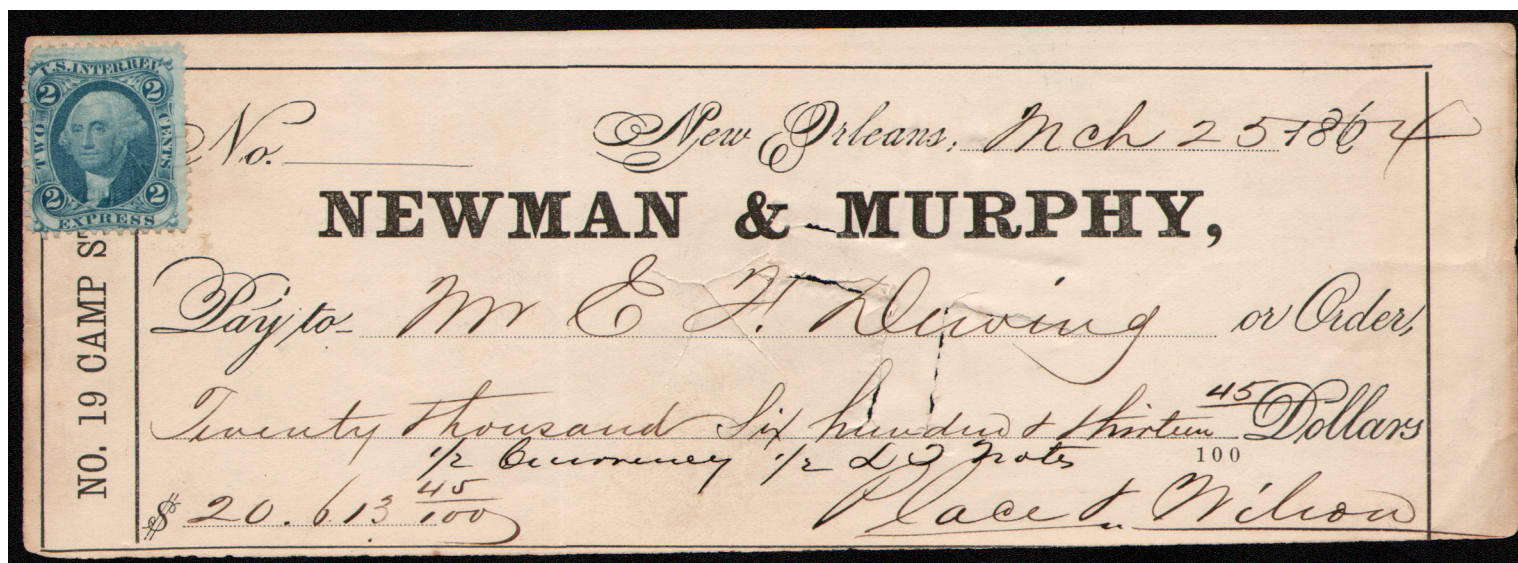 U.S. INTER. REV.
2 2
TWO CENTS
2 2
EXPRESS
No. New Orleans, Mch 25 1864
NEWMAN & MURPHY,
NO. 19 CAMP ST
Pay to Mr E. F. Dewing or Order,
Twenty thousand Six hundred & thirteen 45/100 Dollars
1/2 Currency 1/2 Notes
$ 20.613 45/100
Place & Wilson